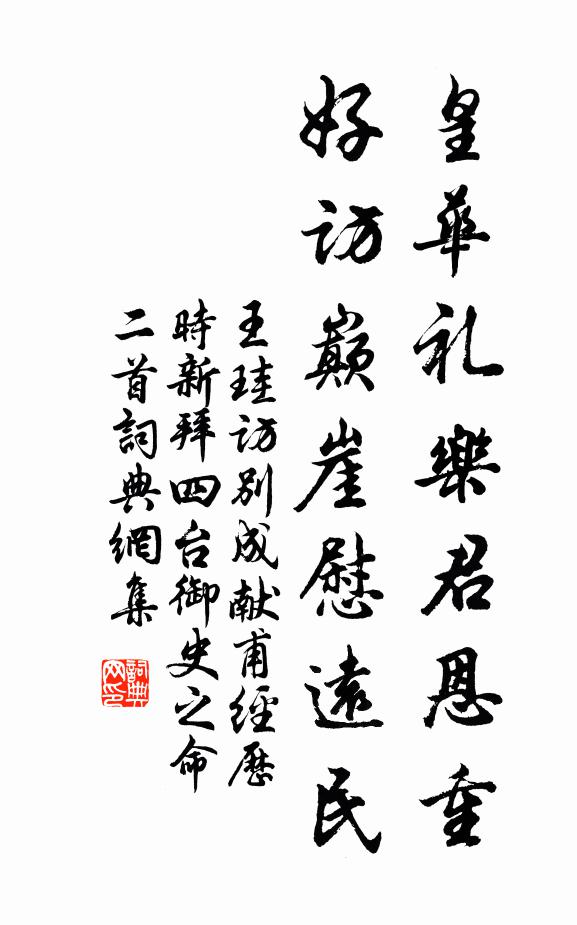 皇華礼樂君恩重
好訪巔崖慰遠民
王珪訪別成献甫經歷
時新拜四台御史之命
二首詞典網集
詞典网印